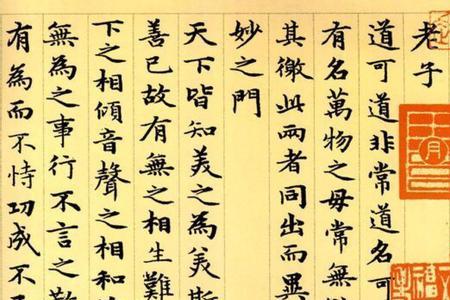 老子
道可道非常道名可
有名萬物之母常無
其徼此兩者同出而異
妙之門
天下皆知美之為美斯
善已故有無之相生難
下之相傾音聲之相和
無為之事行不言之教
有為而不恃功成不
月
福